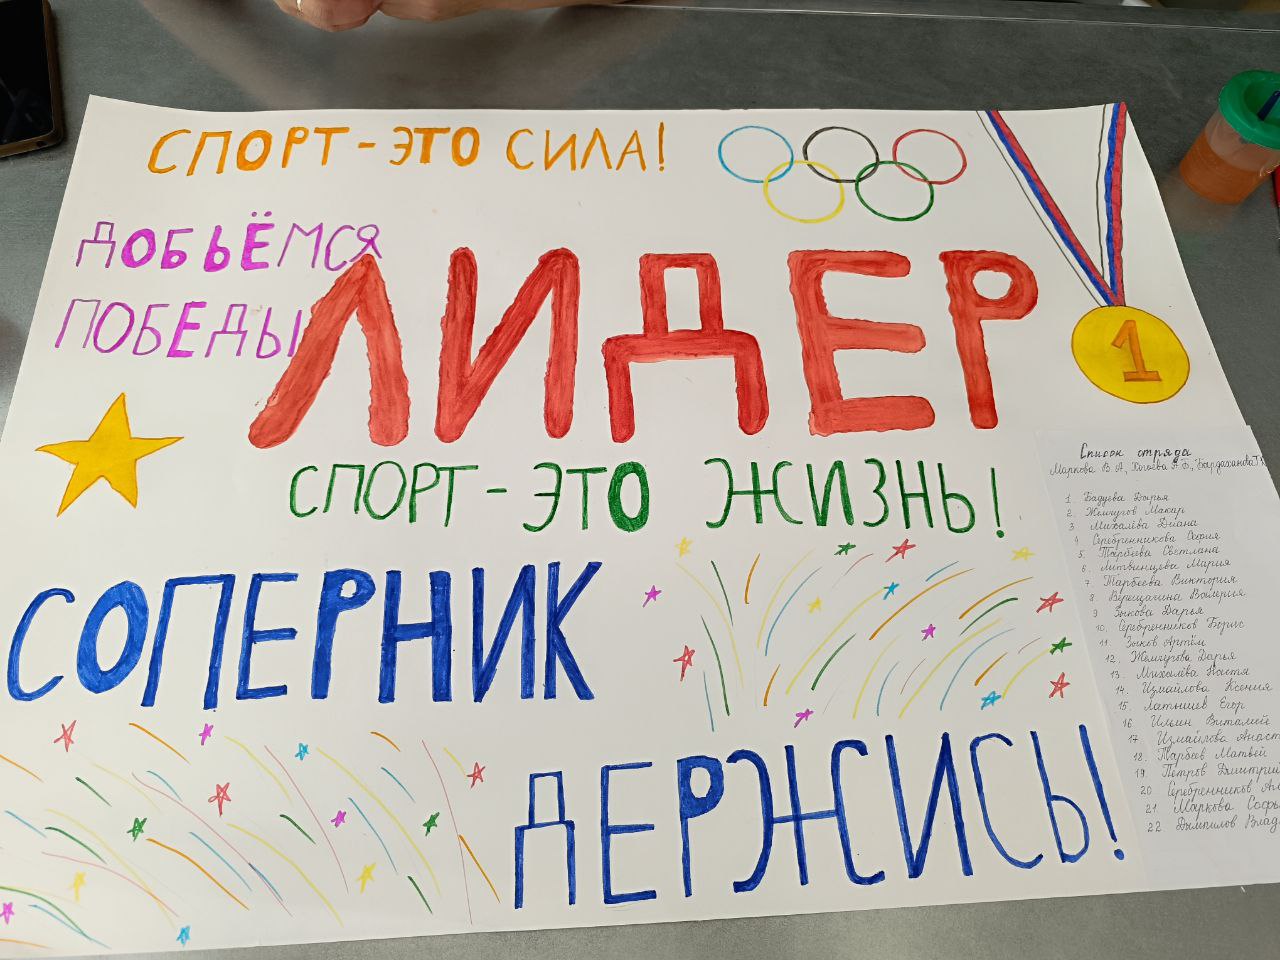 СПОРТ - ЭТО СИЛА!
ДОБЬЁМСЯ
ПОБЕДЫ
ЛИДЕР
1
СПОРТ - ЭТО ЖИЗНЬ!
СОПЕРНИК
ДЕРЖИСЬ!
Список отряда
Маркова В А,
1 Бадуева Дарья
2. Жемчугов Макар
3 Михалёва Диана
4 Серебренникова София
5. Тарбеева Светлана
6. Литвинцева Мария
7. Тарбеева Виктория
8. Верещагина Валерия
9 Зыкова Дарья
10. Серебренников Борис
11. Зыков Артём
12. Жемчугова Дарья
13. Михалёва Настя
14. Измайлова Ксения
15. Латышев Егор
16 Ильин Виталий
17. Измайлова
18. Тарбеев Матвей
19. Петров Дмитрий
20 Серебренников
21. Маркова
22